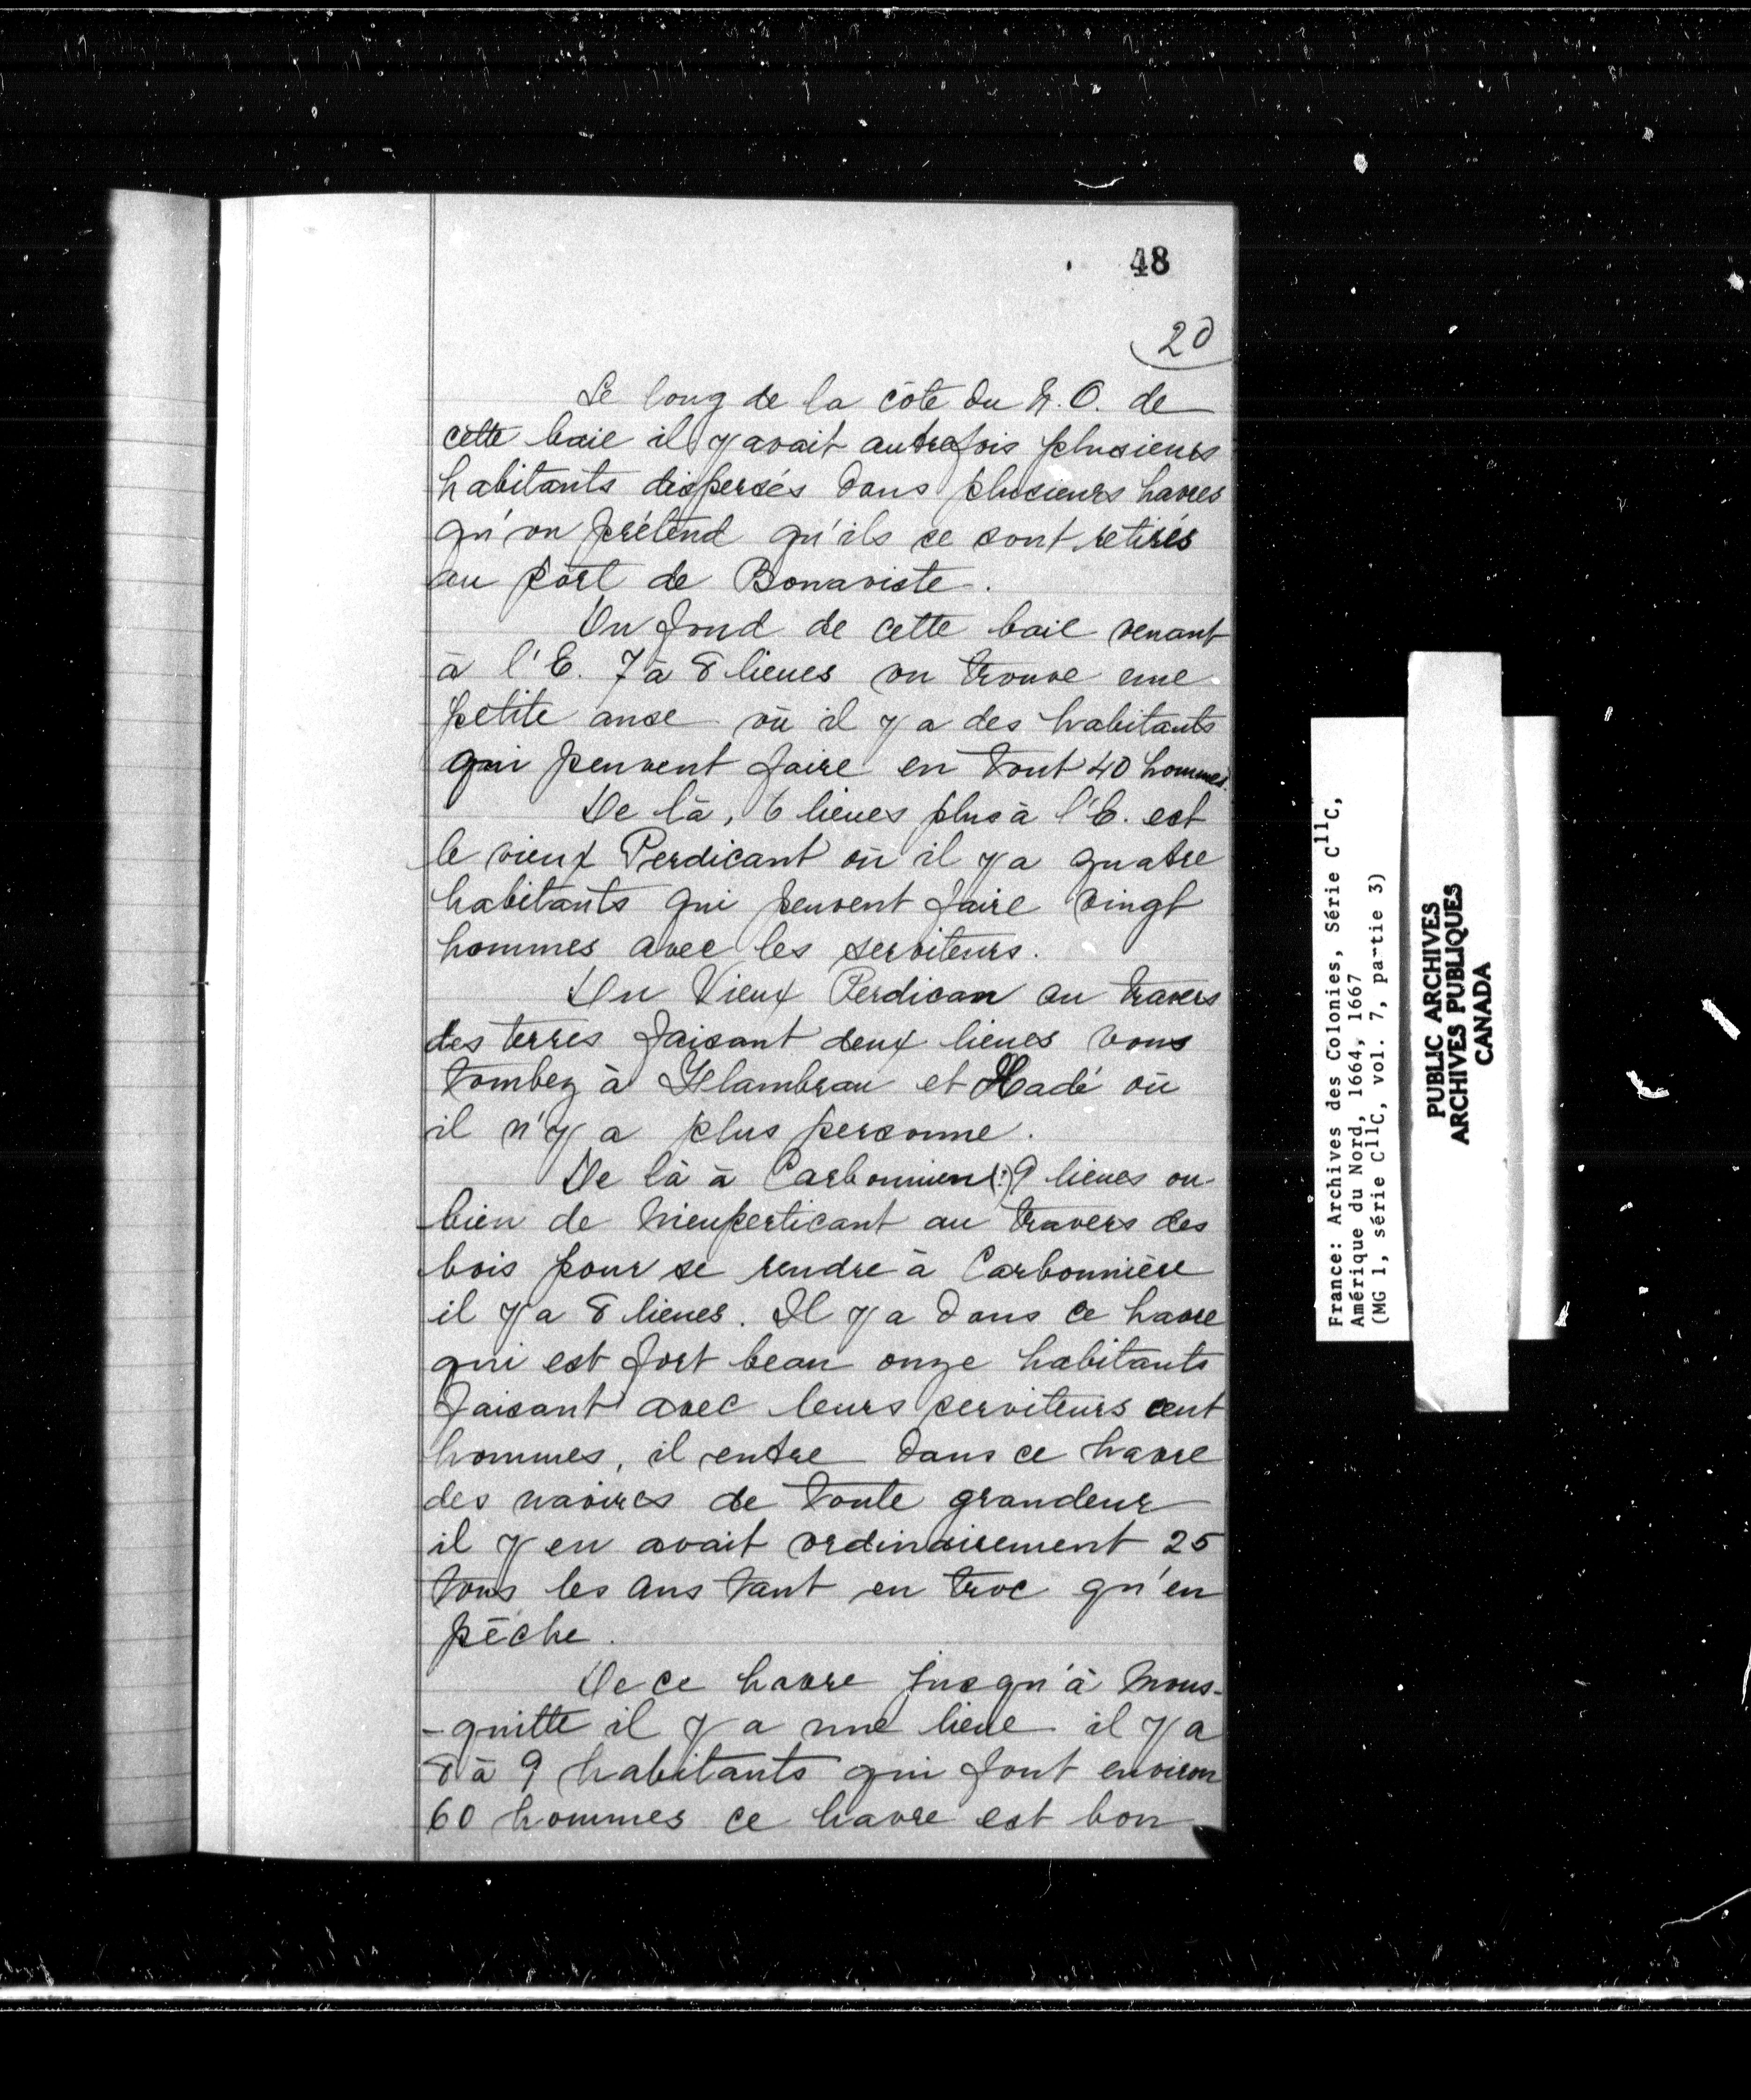 48
20
Le long de la côte du N.O. de
cette baie il y avait autrefois plusieurs
habitants dispersés dans plusieurs havres
qu'on prétend qu'ils se sont retirés
au port de Bonaviste.
Du fond de cette baie venant
à l'E. 7 à 8 lieues on trouve une
petite anse où il y a des habitants
qui peuvent faire en tout 40 hommes.
De là, 6 lieues plus à l'E. est
le vieux Perdicant où il y a quatre
habitants qui peuvent faire vingt
hommes avec les serviteurs.
Du Vieux Perdican au travers
des terres faisant deux lieues vous
tombez à Flambrau et Hadé où
il n'y a plus personne.
De là à Carbonnien(:) 9 lieues ou
bien de Nieuperticant au travers des
bois pour se rendre à Carbonnière
il y a 8 lieues. Il y a dans ce havre
qui est fort beau onze habitants
faisant avec leurs serviteurs cent
hommes, il entre dans ce havre
des navires de toute grandeur
il y en avait ordinairement 25
tous les ans tant en troc qu'en
pêche.
De ce havre jusqu'à Mous-
-quitte il y a une lieue il y a
8 à 9 habitants qui font environ
60 hommes ce havre est bon
France: Archives des Colonies, Série C11C,
Amérique du Nord, 1664, 1667
(MG 1, série C11C, vol. 7, partie 3)
PUBLIC ARCHIVES
ARCHIVES PUBLIQUES
CANADA